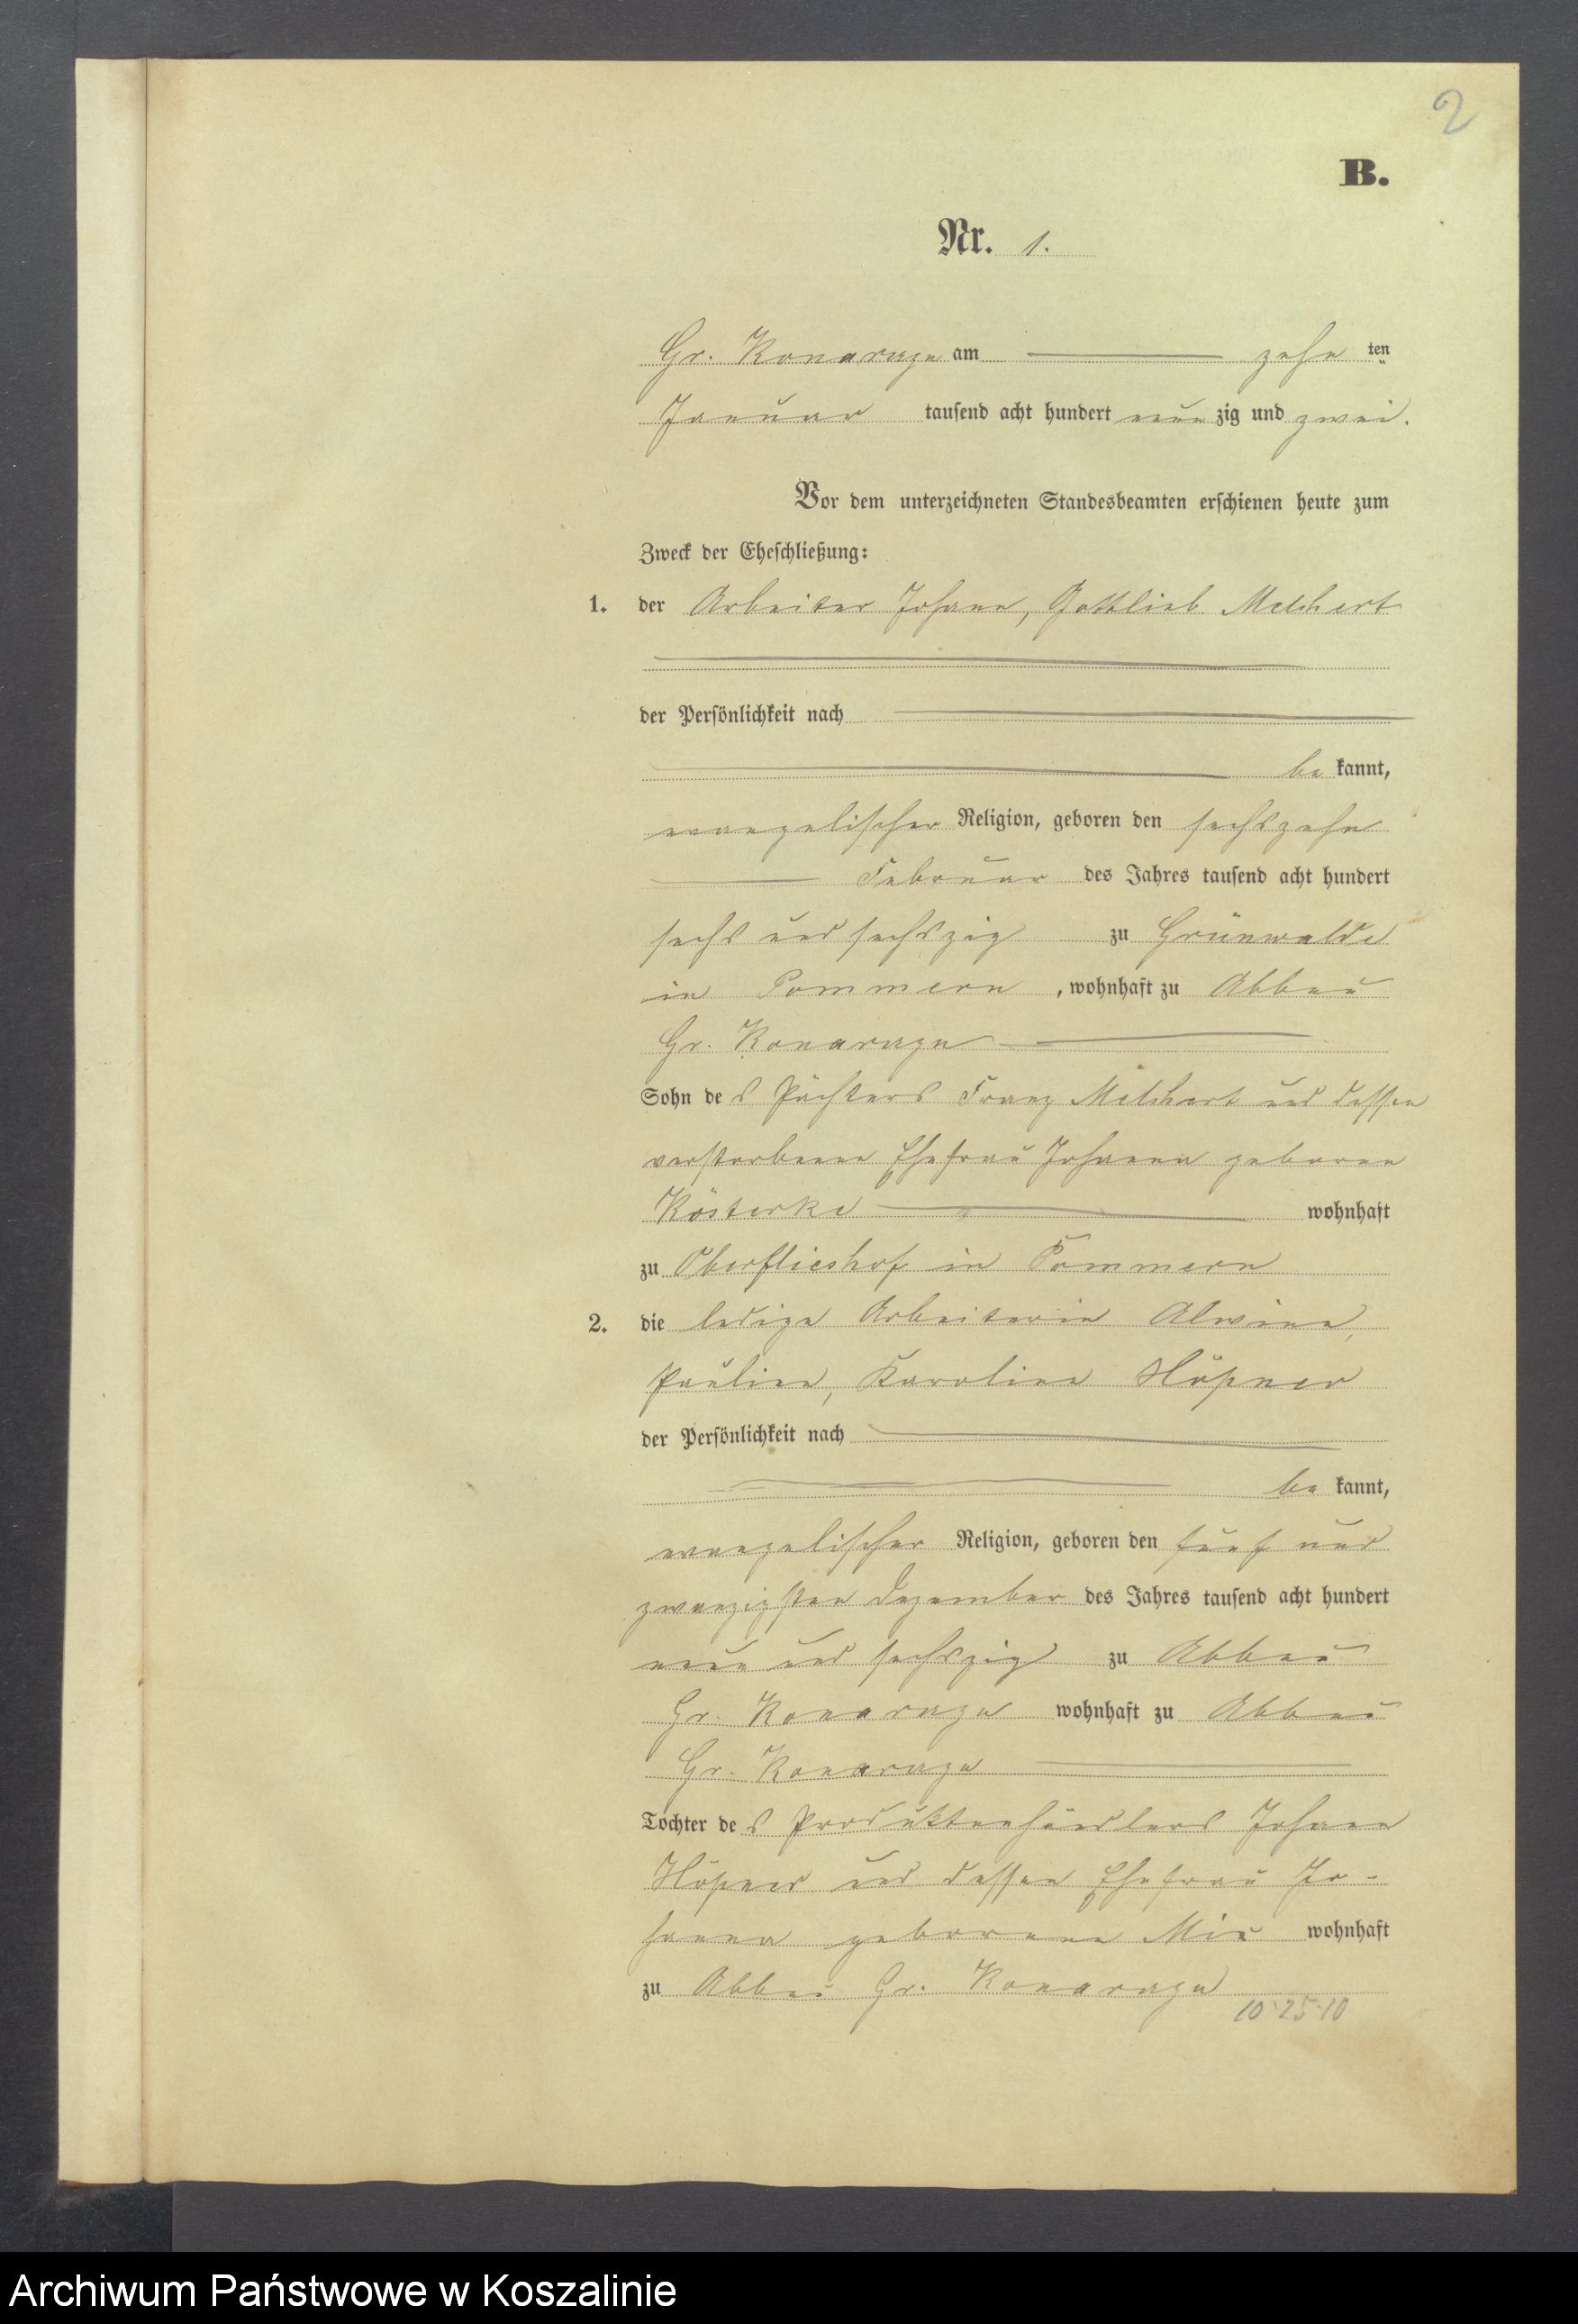 2
B.
Nr. 1.
Gr. Konarzyn am zehn ten
Januar tausend acht hundert neun zig und zwei.
Vor dem unterzeichneten Standesbeamten erschienen heute zum
Zweck der Eheschließung:
1. der Arbeiter Johann, Gottlieb Melchert
der Persönlichkeit nach
be kannt,
evangelischer Religion, geboren den sechszehn
Februar des Jahres tausend acht hundert
sechs und sechszig zu Grünwalde
in Pommern, wohnhaft zu Abbau
Gr. Konarzyn
Sohn des Pächters Franz Melchert und dessen
verstorbenen Ehefrau Johanna geborene
Kösterke wohnhaft
zu Oberflieshof in Pommern
2. die ledige Arbeiterin Alwine,
Pauline, Karoline Höpner
der Persönlichkeit nach
be kannt,
evangelischer Religion, geboren den fünf und
zwanzigsten Dezember des Jahres tausend acht hundert
neun und sechszig zu Abbau
Gr. Konarzyn wohnhaft zu Abbau
Gr. Konarzyn
Tochter des Produktenhändlers Johann
Höpner und dessen Ehefrau Jo-
hanna geborenen wohnhaft
zu Abbau Gr. Konarzyn
10 25 10
Archiwum Państwowe w Koszalinie